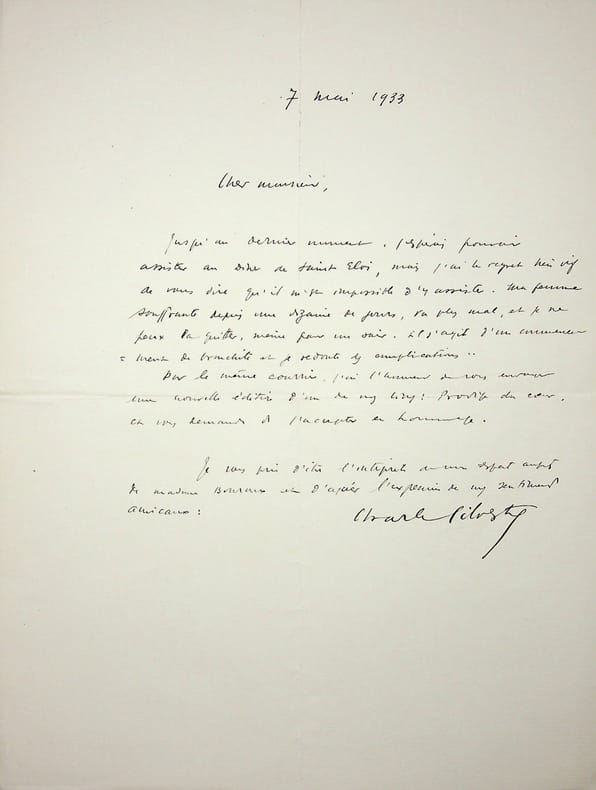 7 mai 1933
Cher monsieur,
Jusqu'au dernier moment, j'espérais pouvoir
assister au Dîner de Saint Eloi, mais j'ai le regret très vif
de vous dire qu'il m'est impossible d'y assister. Ma femme
souffrante depuis une dizaine de jours, va plus mal, et je ne
peux la quitter, même pour un soir. Il s'agit d'un commence
= ment de bronchite et je redoute des complications..
Par le même courrier, j'ai l'honneur de vous envoyer
une nouvelle édition d'un de mes livres : Prodige du cœur,
en vous demandant de l'accepter en hommage.
Je vous prie d'être l'interprète de mon respect auprès
de madame Bouroux et d'agréer l'expression de mes sentiments
amicaux :
Charles Silvestre